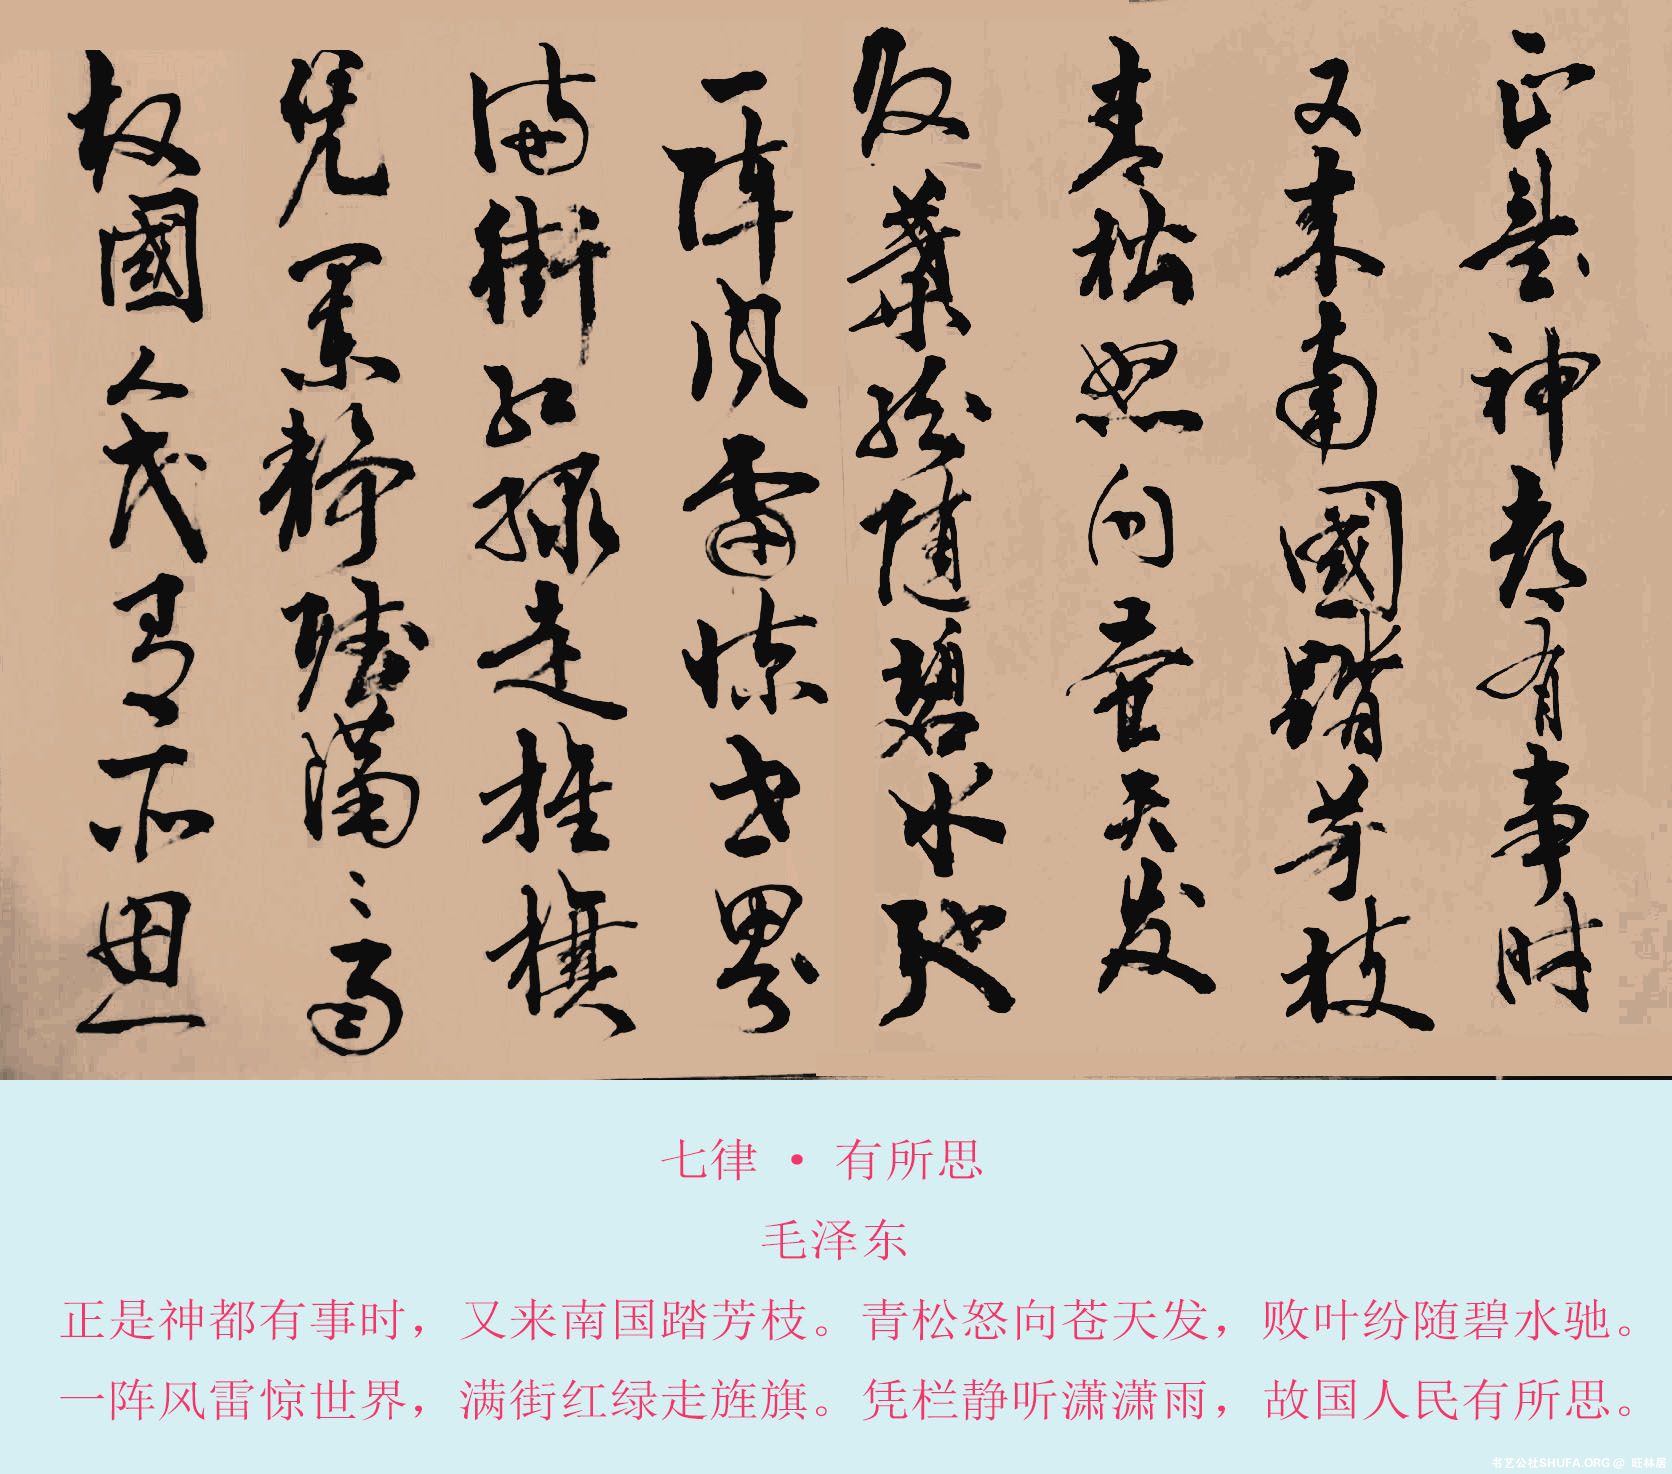 正是神都有事时
又来南国踏芳枝
青松怒向苍天发
败叶纷随碧水驰
一阵风雷惊世界
满街红绿走旌旗
凭栏静听潇潇雨
故国人民有所思
七律·有所思
毛泽东
正是神都有事时，又来南国踏芳枝。青松怒向苍天发，败叶纷随碧水驰。
一阵风雷惊世界，满街红绿走旌旗。凭栏静听潇潇雨，故国人民有所思。
书艺公社SHUFA.ORG @ 旺林居